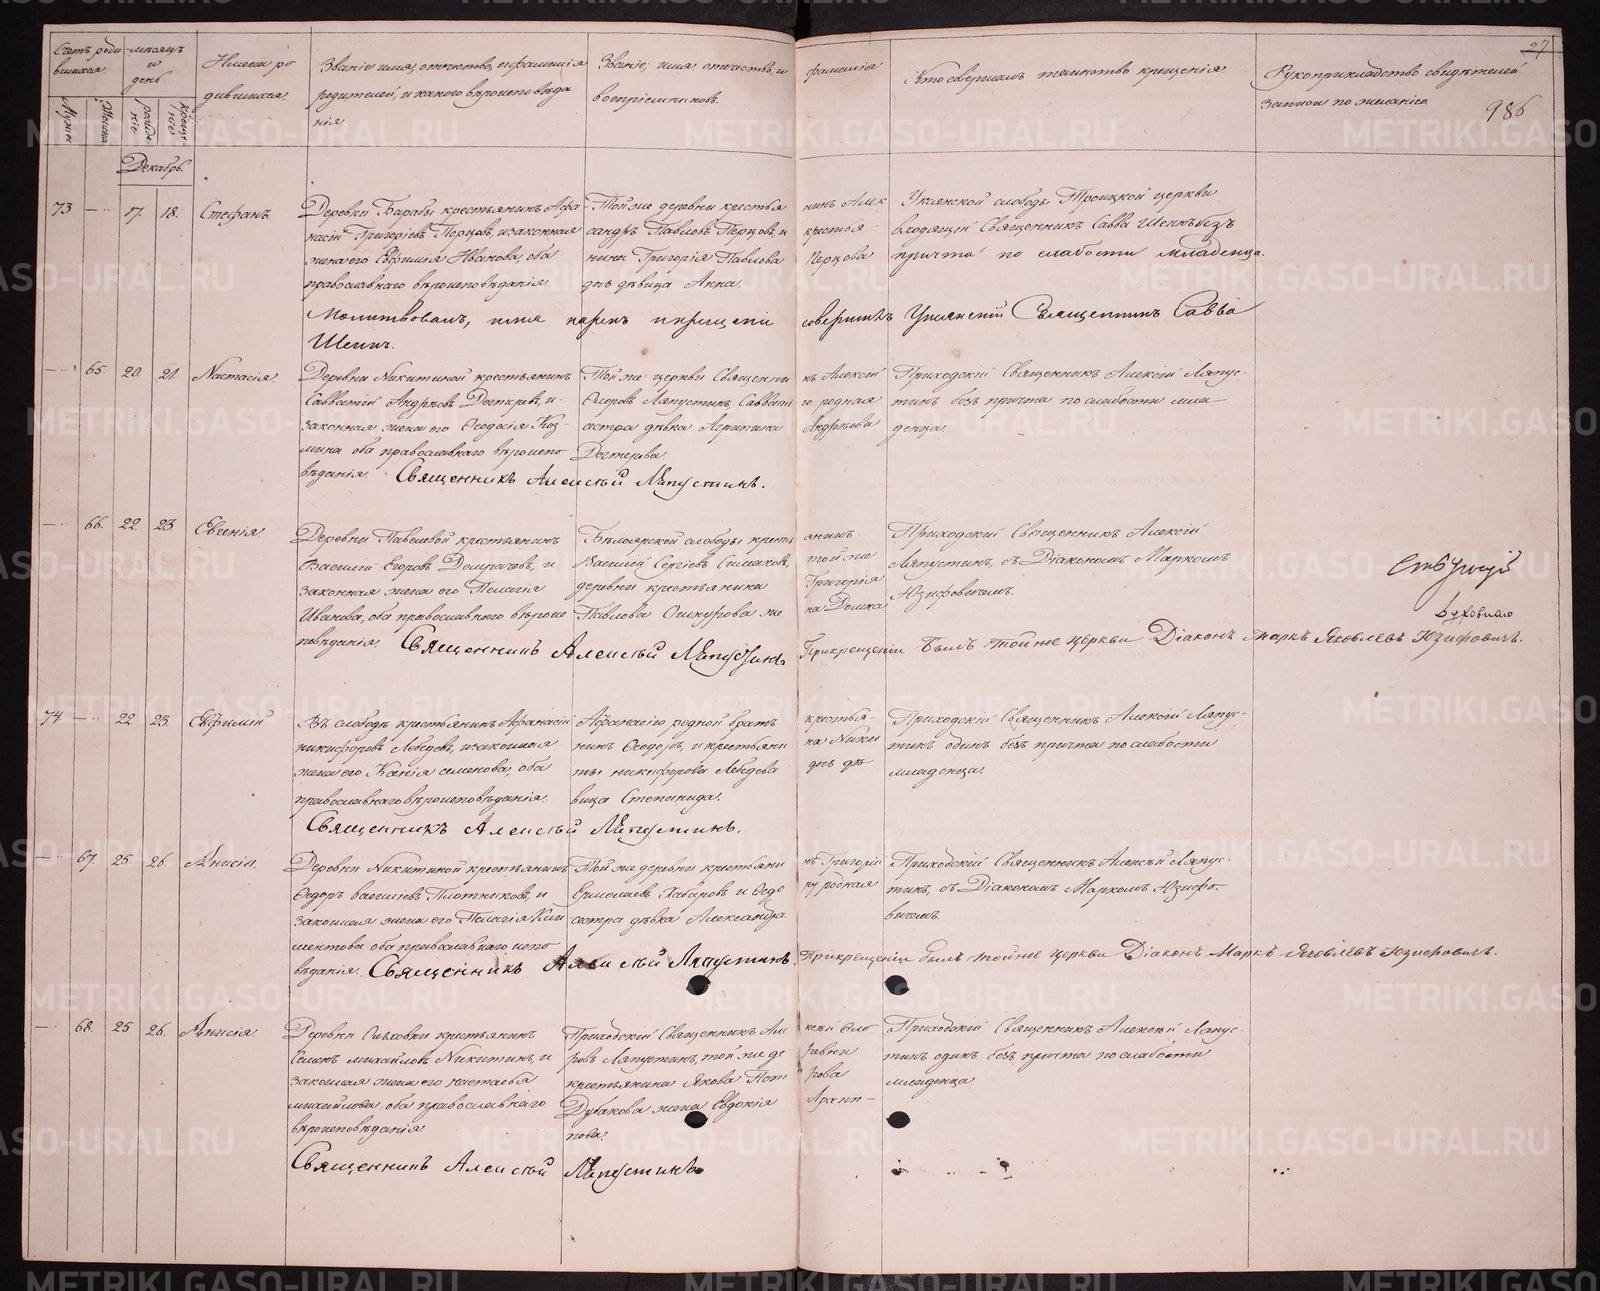 27
986
Счетъ роди-
вшихся.
Мужск
Женска
мѣсяцъ
и
день.
рожде
ніе.
креще
ніе.
Имена ро
дившихся.
Званіе имя, отчество, и фамилія
родителей, и какого вѣроисповѣда
нія.
Званіе, имя, отчество, и фамилія
воспріемниковъ.
Кто совершалъ таинство крещенія.
Рукоприкладство свидѣтелей
записи по желанію.
Декабрь.
73 — 17. 18. Стефанъ.
Деревни Барабы крестьянинъ Афа-
насій Григорьевъ Перцовъ, и законная
жена его Евфимія Иванова, оба
православнаго вѣроисповѣданія.
Той же деревни крестья нинъ Алек
сандръ Павловъ Перцовъ, и крестья-
нина Григорія Павлова Перцова
дочь дѣвица Анна.
Слободы Троицкой церкви
Священникъ Савва безъ
причта по слабости младенца.
Молитвовалъ, имя нарекъ и крещеніе совершилъ Священникъ Савва
— 65. 20. 21. Настасія.
Деревни Никитиной крестьянинъ
Савватій Андреевъ и
законная жена его Ѳеодосія Коз-
мина оба православнаго вѣроиспо-
вѣданія.
Той же церкви Священни къ Алексій
Ѳедоровъ Ляпустинъ, Савватія го родная
сестра дѣвка Агрипина Андреева
Приходскій Священникъ Алексій Ляпус-
тинъ безъ причта по слабости мла-
денца.
Священникъ Алексѣй Ляпустинъ.
— 66. 22. 23 Евгенія.
Деревни Павловой крестьянинъ
Василій Егоровъ и
законная жена его Пелагія
Иванова, оба православнаго вѣроис
повѣданія.
Бѣлоярской слободы крестьянинъ.
Василій Сергѣевъ той же
деревни крестьянина Григорія
Павлова
Приходскій Священникъ Алексій
Ляпустинъ, съ Діакономъ Маркомъ
Юзифовичемъ.
Священникъ Алексѣй Ляпустинъ
При крещеніи былъ той же церкви Діаконъ Маркъ Яковлевъ Юзифовичъ.
74 — 22. 23. Евфимій
Въ слободѣ крестьянинъ Афанасій
Никифоровъ Лебедевъ, и законная
жена его Ксенія Семенова, оба
православнаго вѣроисповѣданія.
Афанасіего родной братъ крестья-
нинъ Ѳеодоръ, и крестьяни на Ники
ты Никифорова Лебедева дочь дѣ
вица Степанида.
Приходскій Священникъ Алексій Ляпус-
тинъ одинъ безъ причта по слабости
младенца.
Священникъ Алексѣй Ляпустинъ.
— 67. 25. 26. Анисія.
Деревни Никитиной крестьянинъ
Ѳедоръ Васильевъ Плотниковъ, и
законная жена его Пелагія Кли
ментова оба православнаго испо
вѣданія.
Той же деревни крестьяни нъ Григорій
Ермолаевъ Хабаровъ и Ѳедо ру родная
сестра дѣвка Александра
Приходскій Священникъ Алексѣй Ляпус-
тинъ, съ Діакономъ Маркомъ Юзифо-
вичемъ.
Священникъ Алексѣй Ляпустинъ.
При крещеніи былъ той же церкви Діаконъ Маркъ Яковлевъ Юзифовичъ.
— 68. 25 26. Анисія.
Деревни крестьянинъ
Семенъ Михайловъ Никитинъ, и
законная жена его Настасья
Михайлова оба православнаго
вѣроисповѣданія.
Приходскій Священникъ Але ксѣй Ѳео
ровъ Ляпустинъ, той же де ревни
крестьянина Якова
жена Евдокія Архип-
пова.
Приходскій Священникъ Алексѣй Ляпус-
тинъ одинъ безъ причта по слабости
младенца.
Священникъ Алексѣй Ляпустинъ
METRIKI.GASO-URAL.RU